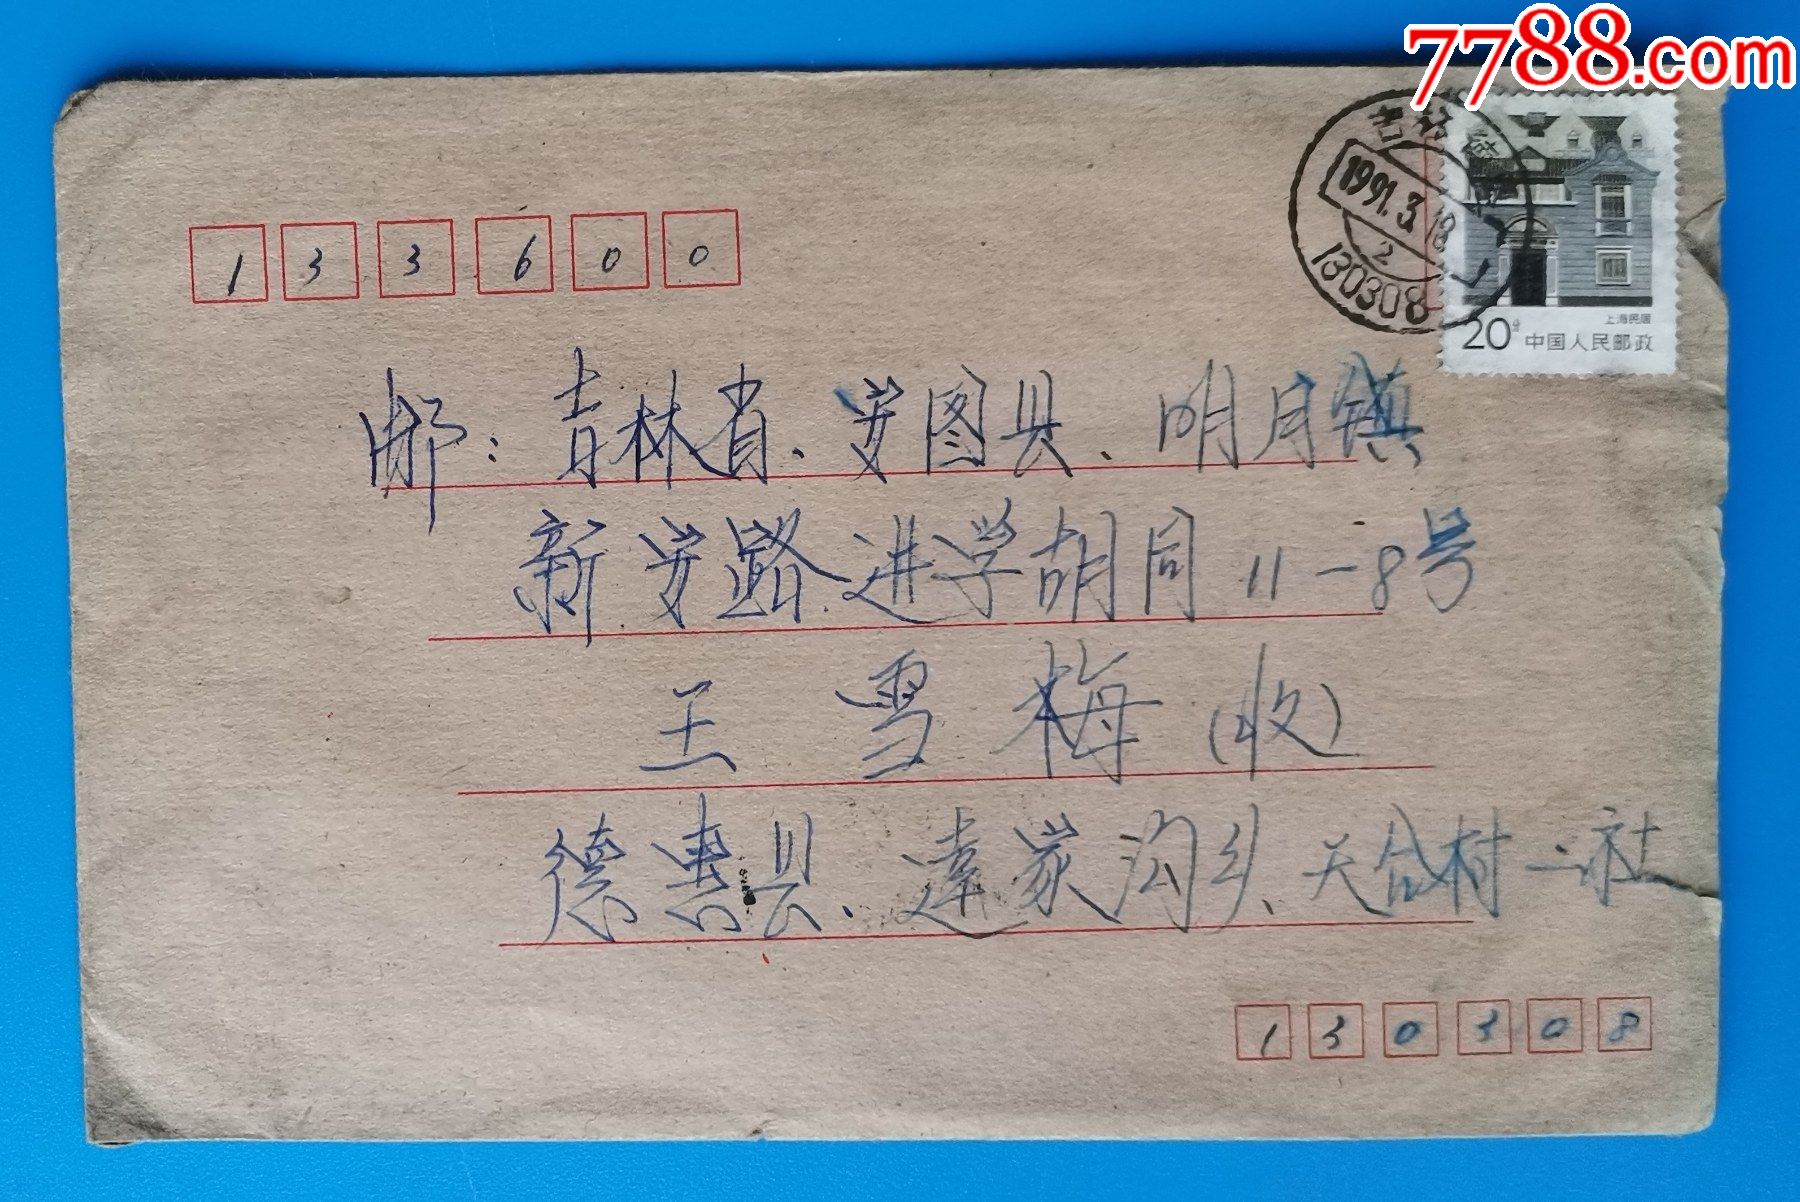 7788.com
吉林
1991.3.18
2
130308
20分
上海民居
中国人民邮政
133600
邮：吉林省、安图县、明月镇
新安路进学胡同11-8号
王雪梅（收）
德惠县、达家沟乡、天台村二社
130308